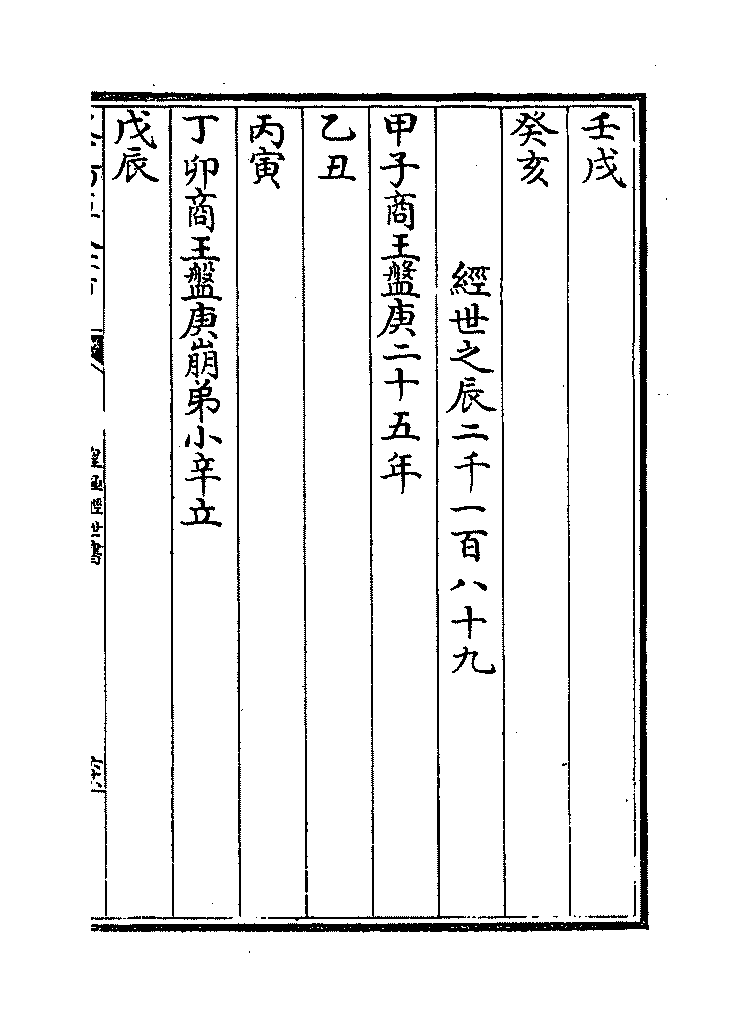 壬戌
癸亥
經世之辰二千一百八十九
甲子商王盤庚二十五年
乙丑
丙寅
丁卯商王盤庚崩弟小辛立
戊辰
皇極經世書